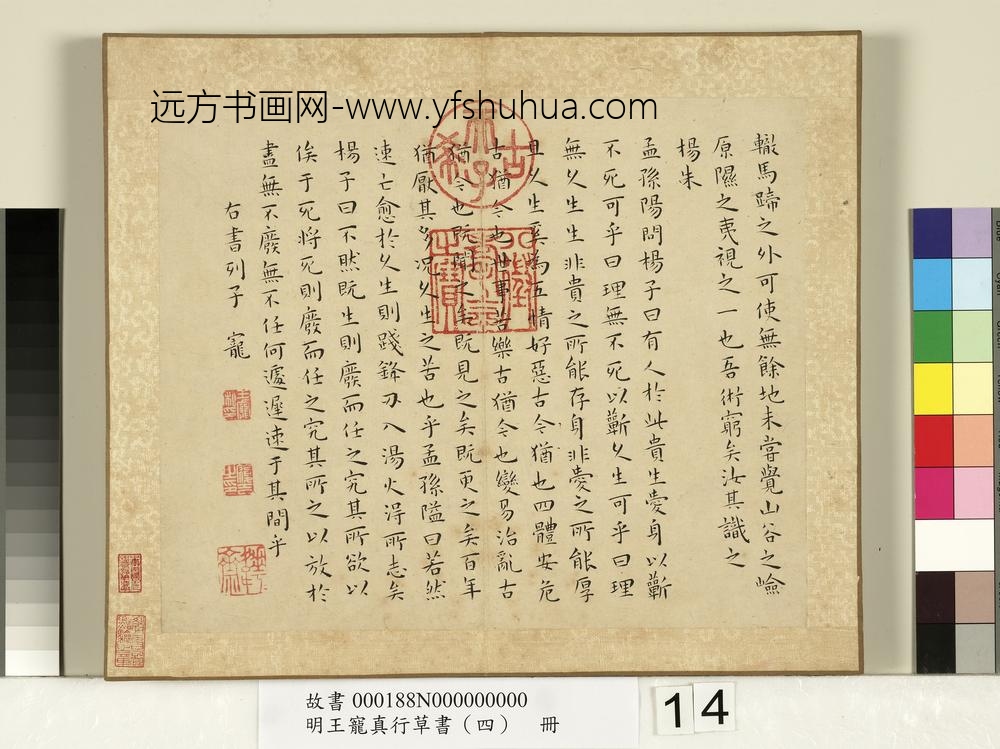 远方书画网-www.yfshuhua.com
轍馬蹄之外可使無餘地未嘗覺山谷之嶮
原隰之夷視之一也吾術窮矣汝其識之
楊朱
孟孫陽問楊子曰有人於此貴生愛身以蘄
不死可乎曰理無不死以蘄久生可乎曰理
無久生生非貴之所能存身非愛之所能厚
且久生奚為五情好惡古今猶也四體安危
古猶今也世事苦樂古猶今也變易治亂古
猶今也既聞之矣既見之矣既更之矣百年
猶厭其多况久生之苦也乎孟孫陽曰若然
速亡愈於久生則踐鋒刃入湯火得所志矣
楊子曰不然既生則廢而任之究其所欲以
俟于死将死則廢而任之究其所之以放於
盡無不廢無不任何遽遲速于其間乎
右書列子 寵
古希天子
故書 000188N000000000
明王寵真行草書（四） 冊
14